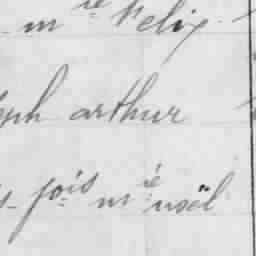 m ie Felix
ph arthur
s- fois m ie noël